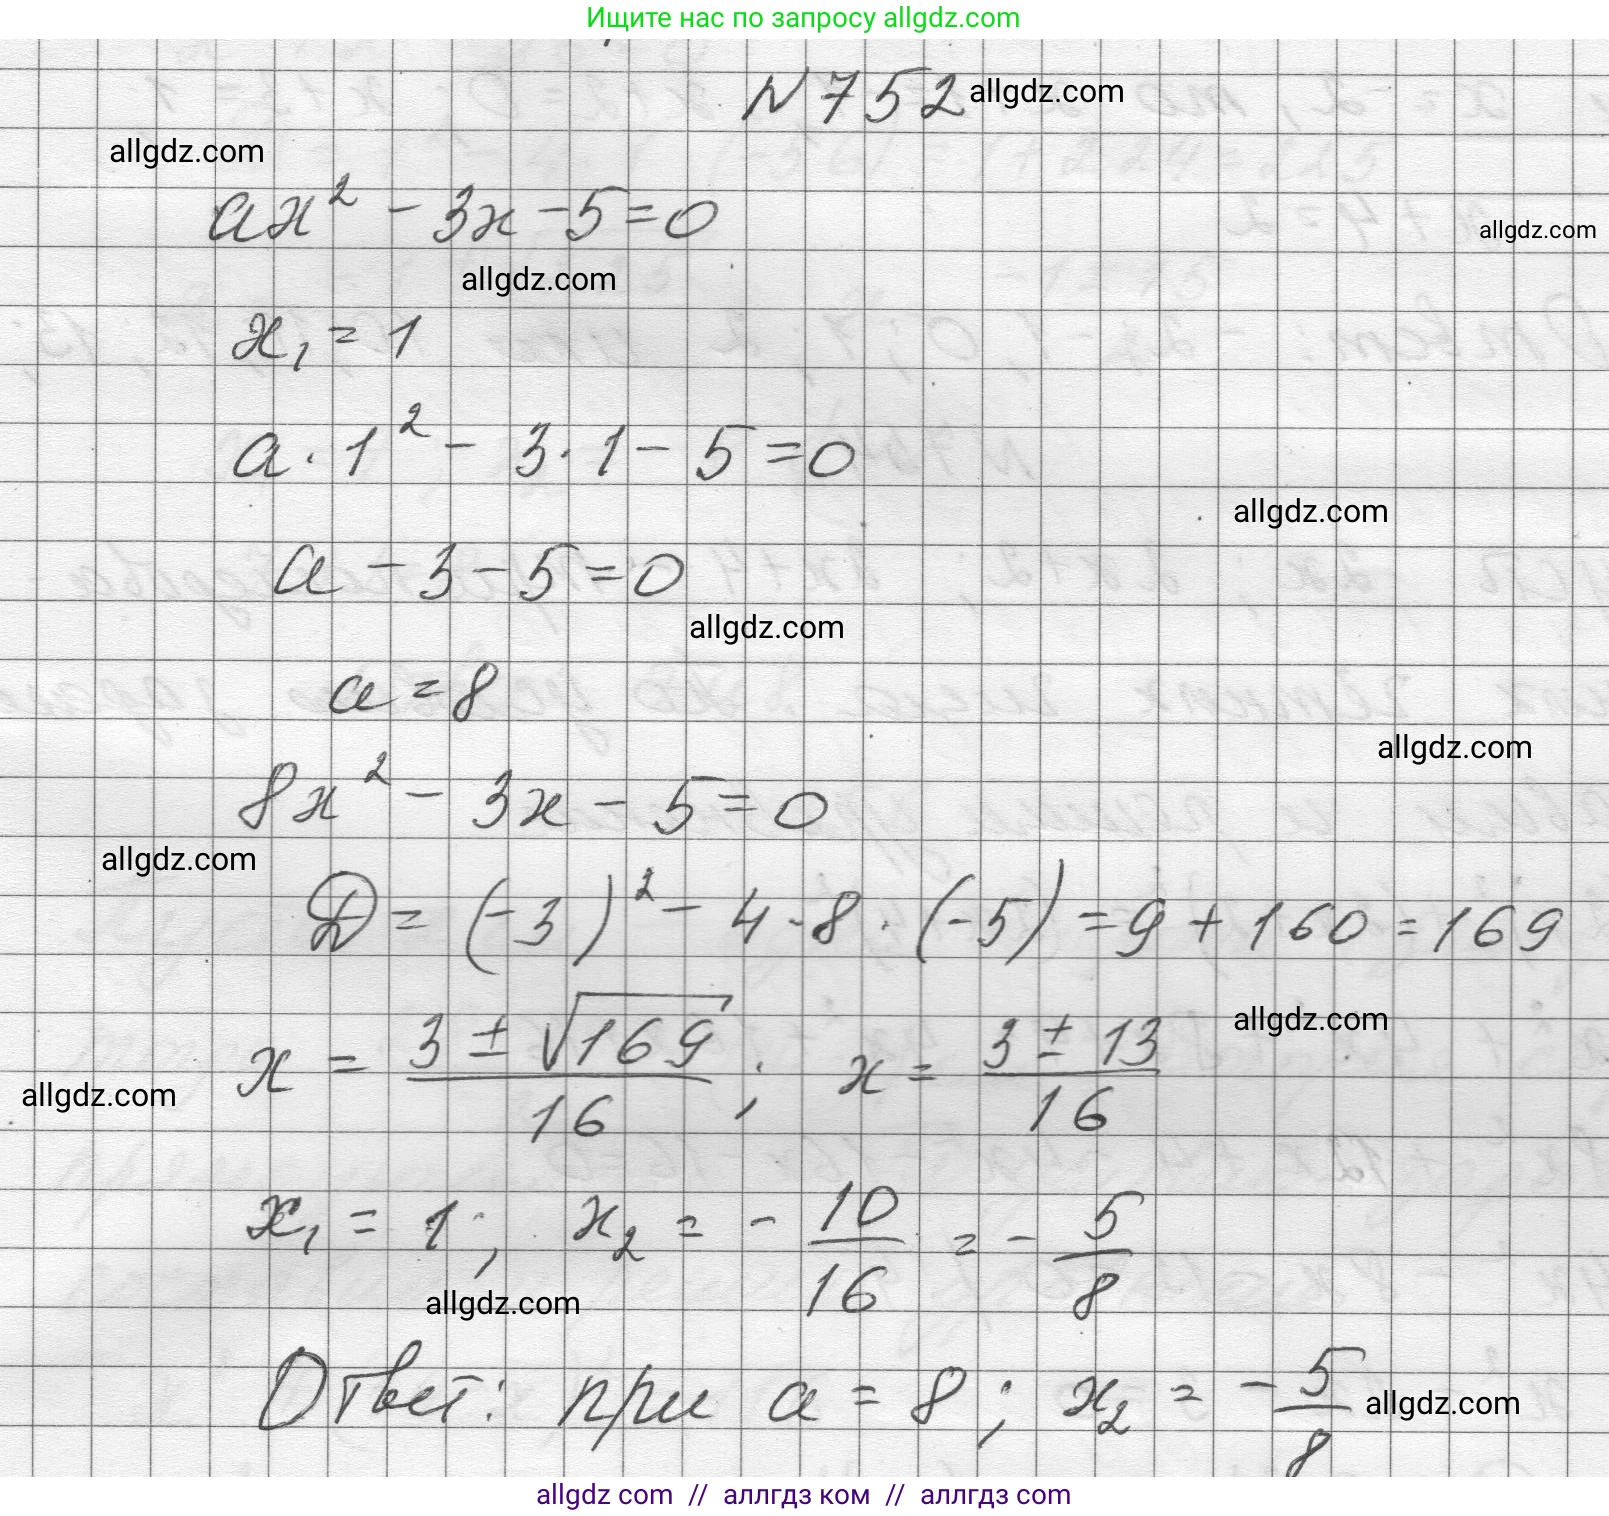 Ищите нас по запросу allgdz.com
N 752 allgdz.com
allgdz.com
ax² - 3x - 5 = 0
allgdz.com
allgdz.com
x₁ = 1
a · 1² - 3 · 1 - 5 = 0
allgdz.com
a - 3 - 5 = 0
allgdz.com
a = 8
allgdz.com
8x² - 3x - 5 = 0
allgdz.com
D = (-3)² - 4 · 8 · (-5) = 9 + 160 = 169
allgdz.com
x = (3 ± √169)/16 ; x = (3 ± 13)/16
allgdz.com
x₁ = 1 ; x₂ = - 10/16 = - 5/8
allgdz.com
Ответ: при a = 8 ; x₂ = - 5/8
allgdz.com
allgdz com // аллгдз ком // аллгдз com